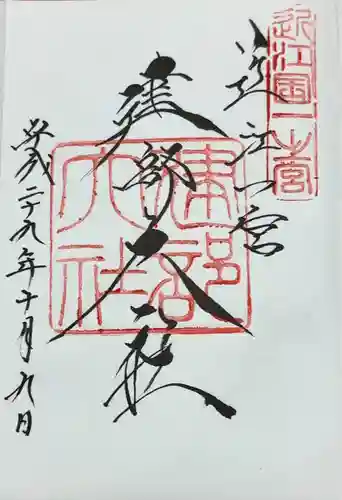 近江國一之宮
近江一宮
建部大社
建部大社
平成二十九年十月九日